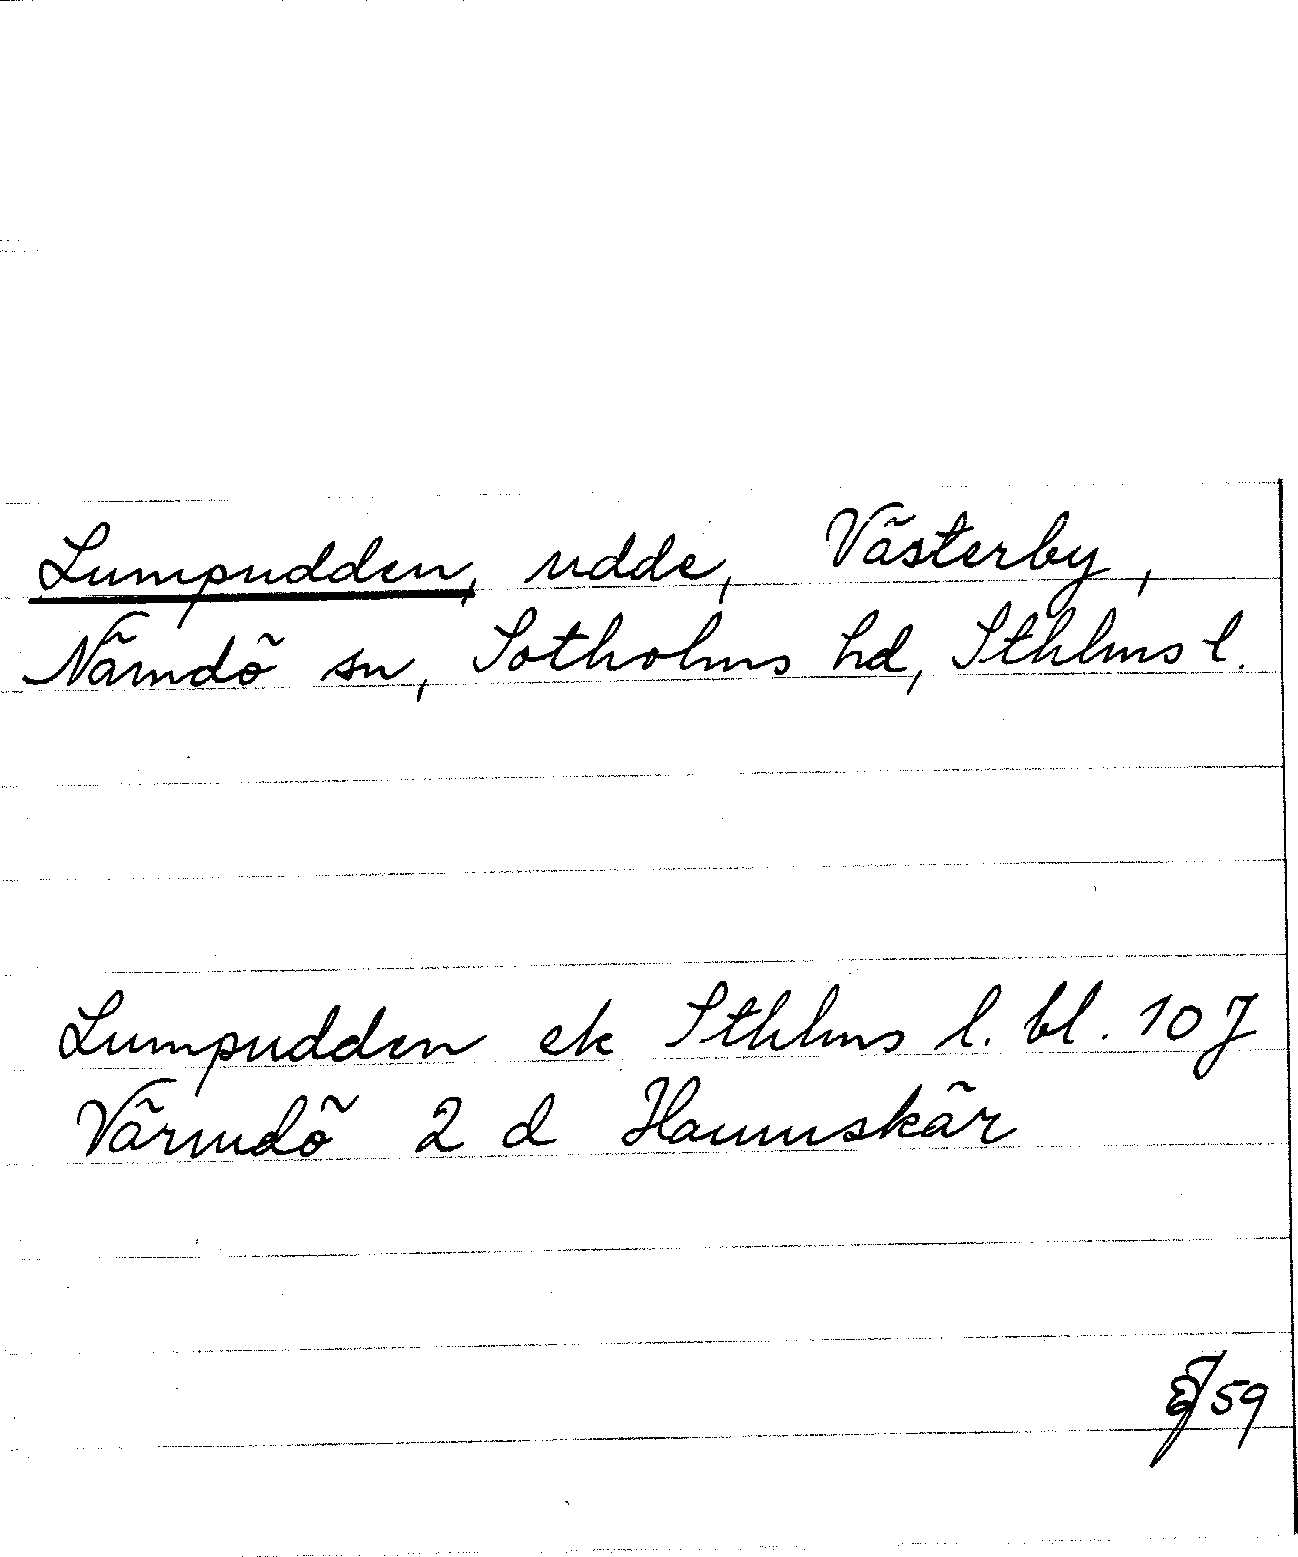 Lumpudden, udde, Västerby,
Nämdö sn, Sotholms hd, Sthlms l.
Lumpudden ek Sthlms l. bl. 107
Värmdö 2 d Hamnskär
59